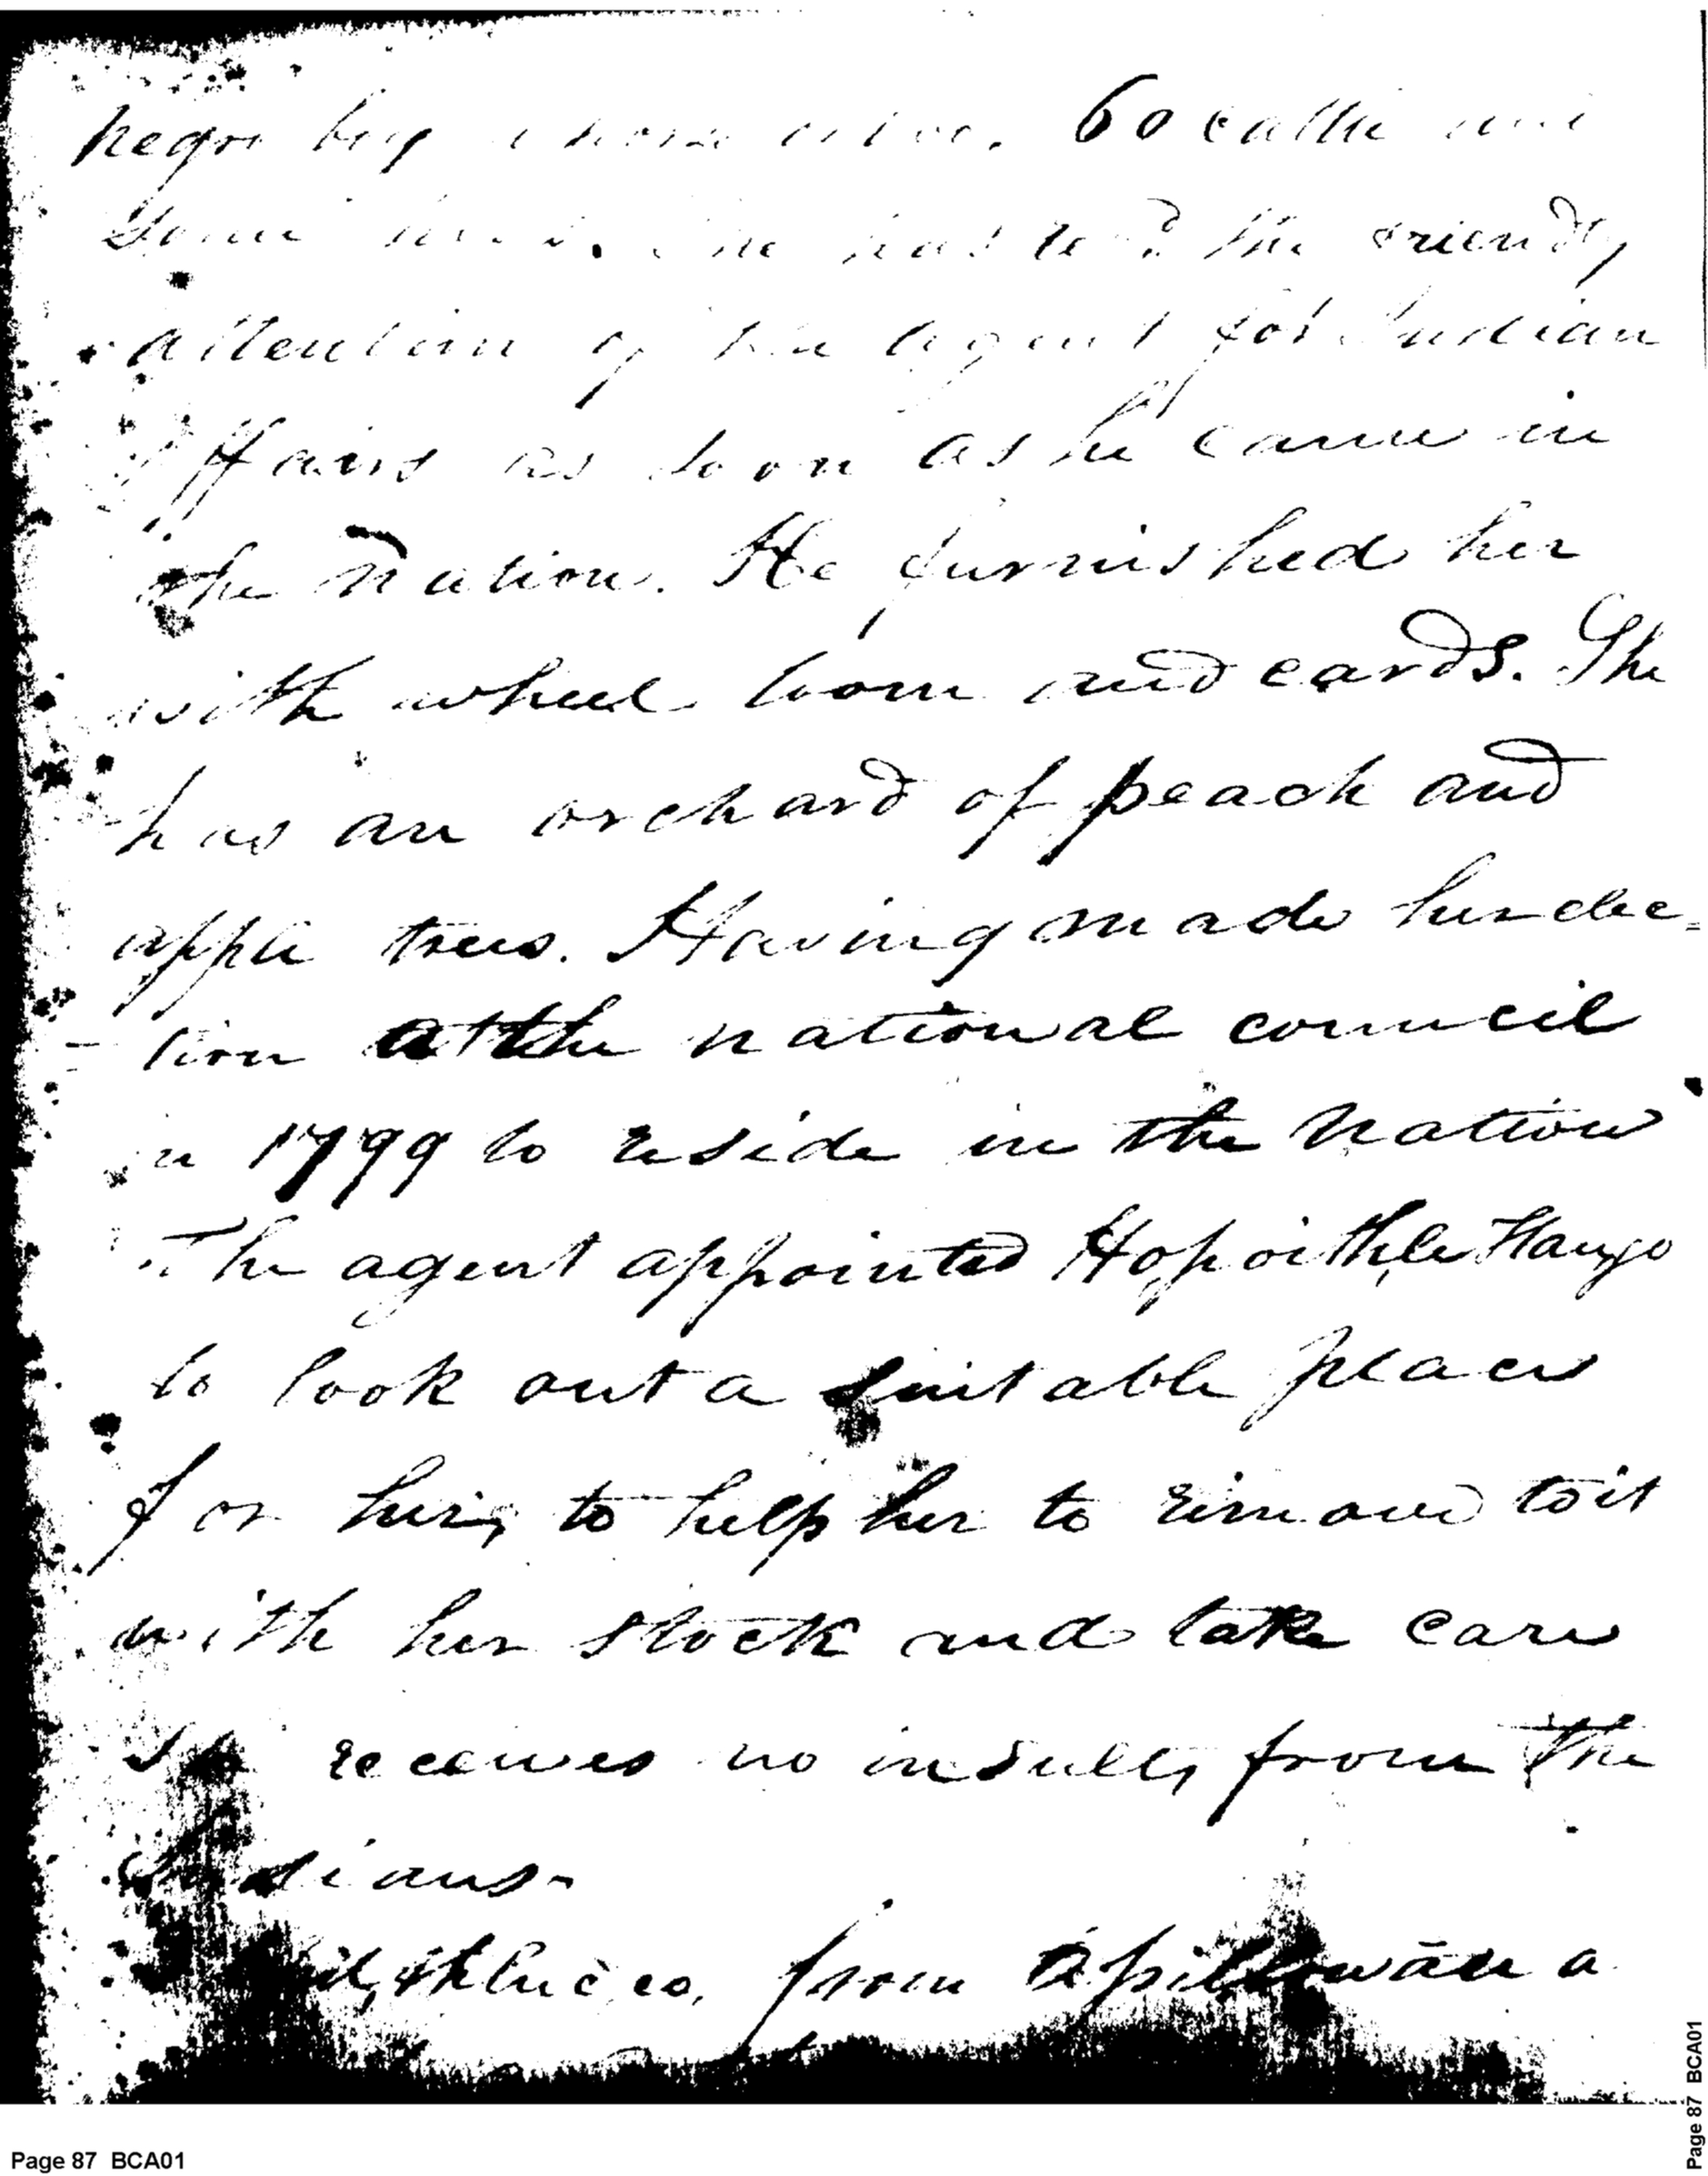 negro boy a horse or two, 60 cattle and
some hogs. She has rec'd the friendly
attention of the agent for Indian
affairs as soon as he came in
the nation. He furnished her
with wheel loom and cards. She
has an orchard of peach and
apple trees. Having made her elec=
=tion at the national council
in 1799 to reside in the nation
The agent appointed Hopoithle Haujo
to look out a suitable place
for her, to help her to remove to it
with her stock and take care
she receives no insults from the
Indians-
from a
Page 87 BCA01
Page 87 BCA01